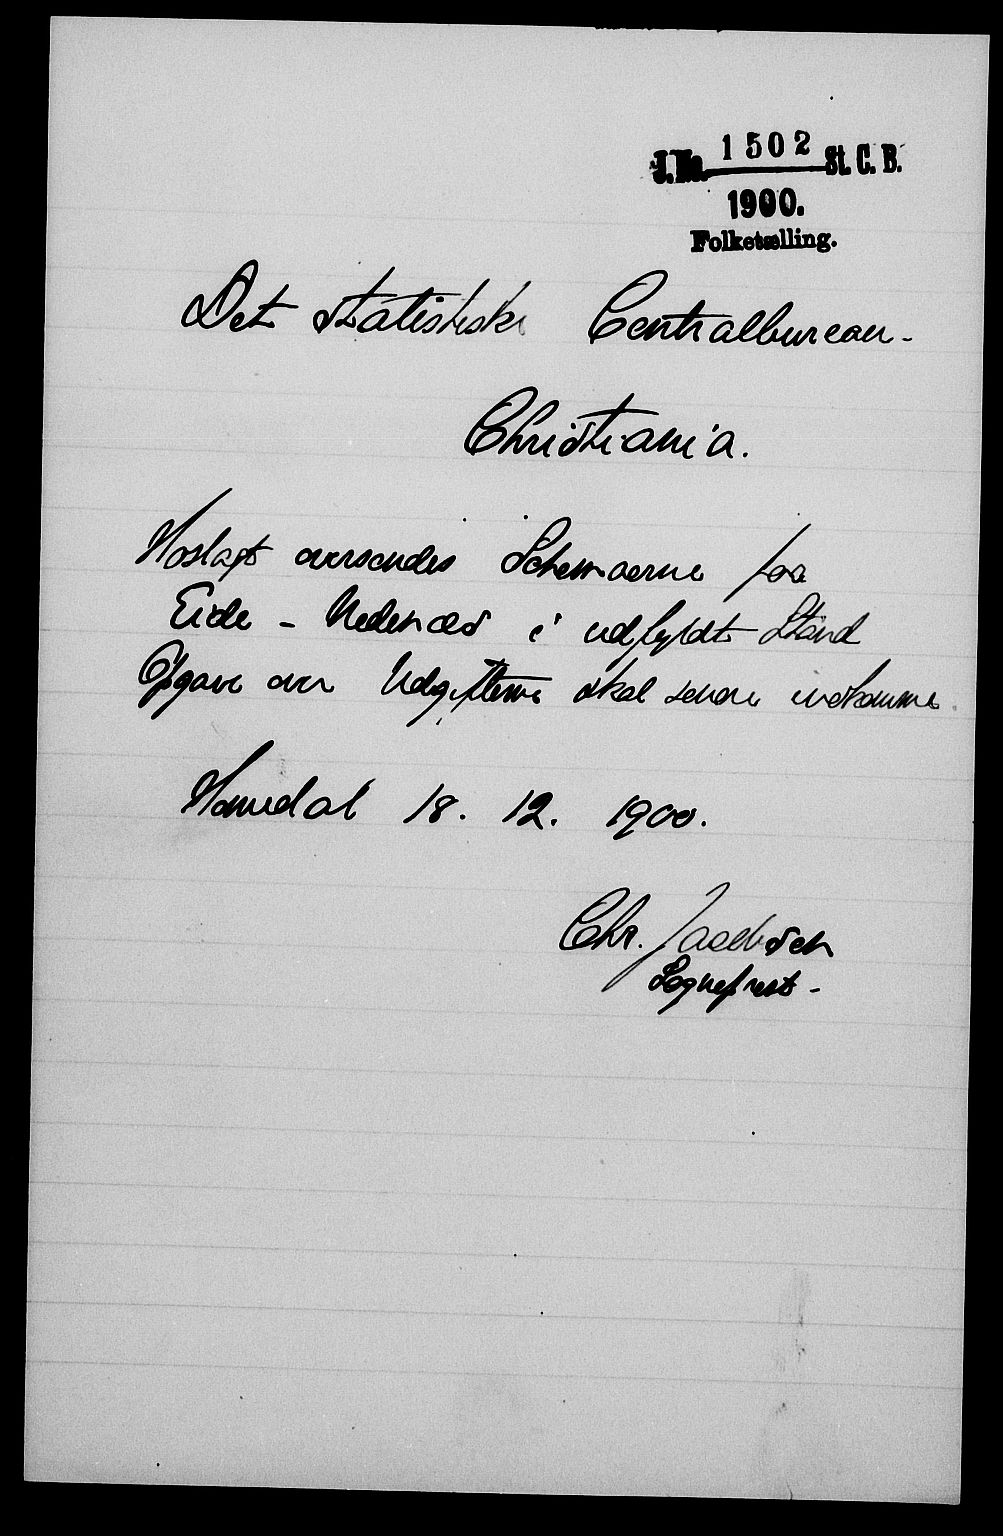 J.No. 1502 St. C. B.
1900.
Folketælling.
Det statistiske Centralbureau.
Christiania.
Hoslagt oversendes Schemaerne fra
Eide - Nedenæs i udfyldt Stand
Opgave over Udgifterne skal senere indkomme.
Homedal 18. 12. 1900.
Chr. Jacobsen
Sognepræst.